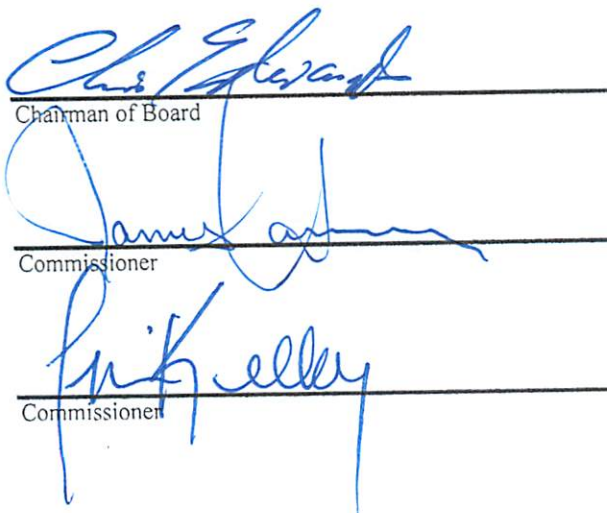 Chris Edwards
Chairman of Board
James
Commissioner
Kelley
Commissioner